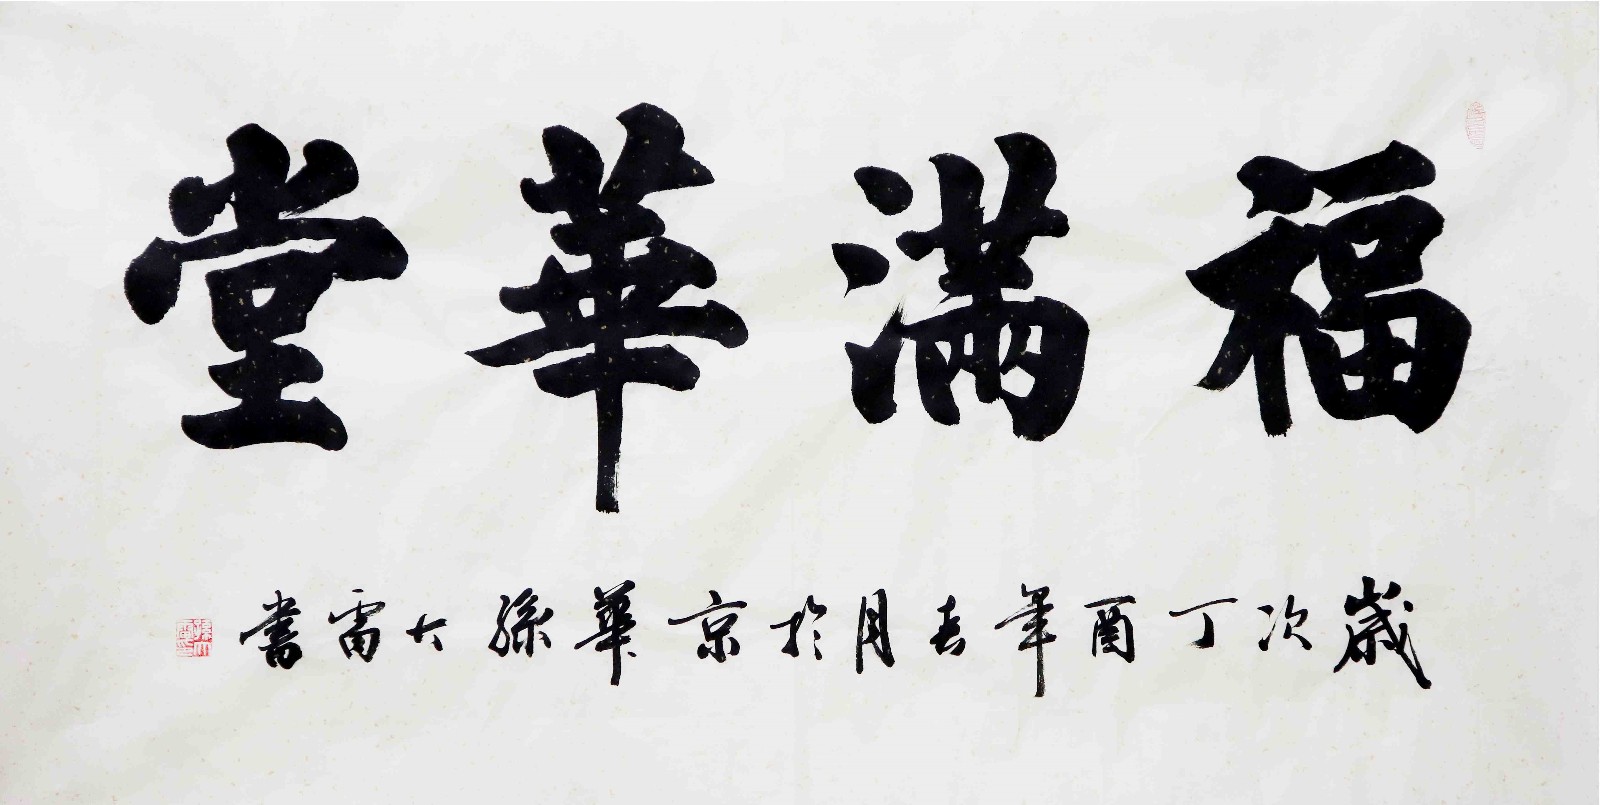 福滿華堂
歲次丁酉年吉月於京華孫大雷書